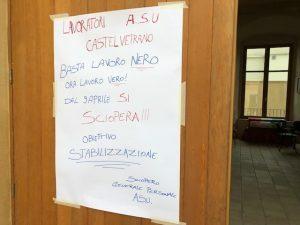 LAVORATORI A.S.U
CASTELVETRANO
BASTA LAVORO NERO
ORA LAVORO VERO!
DAL 9 APRILE SI
SCIOPERA!!!
OBIETTIVO
STABILIZZAZIONE
SCIOPERO
GENERALE PERSONALE
ASU.